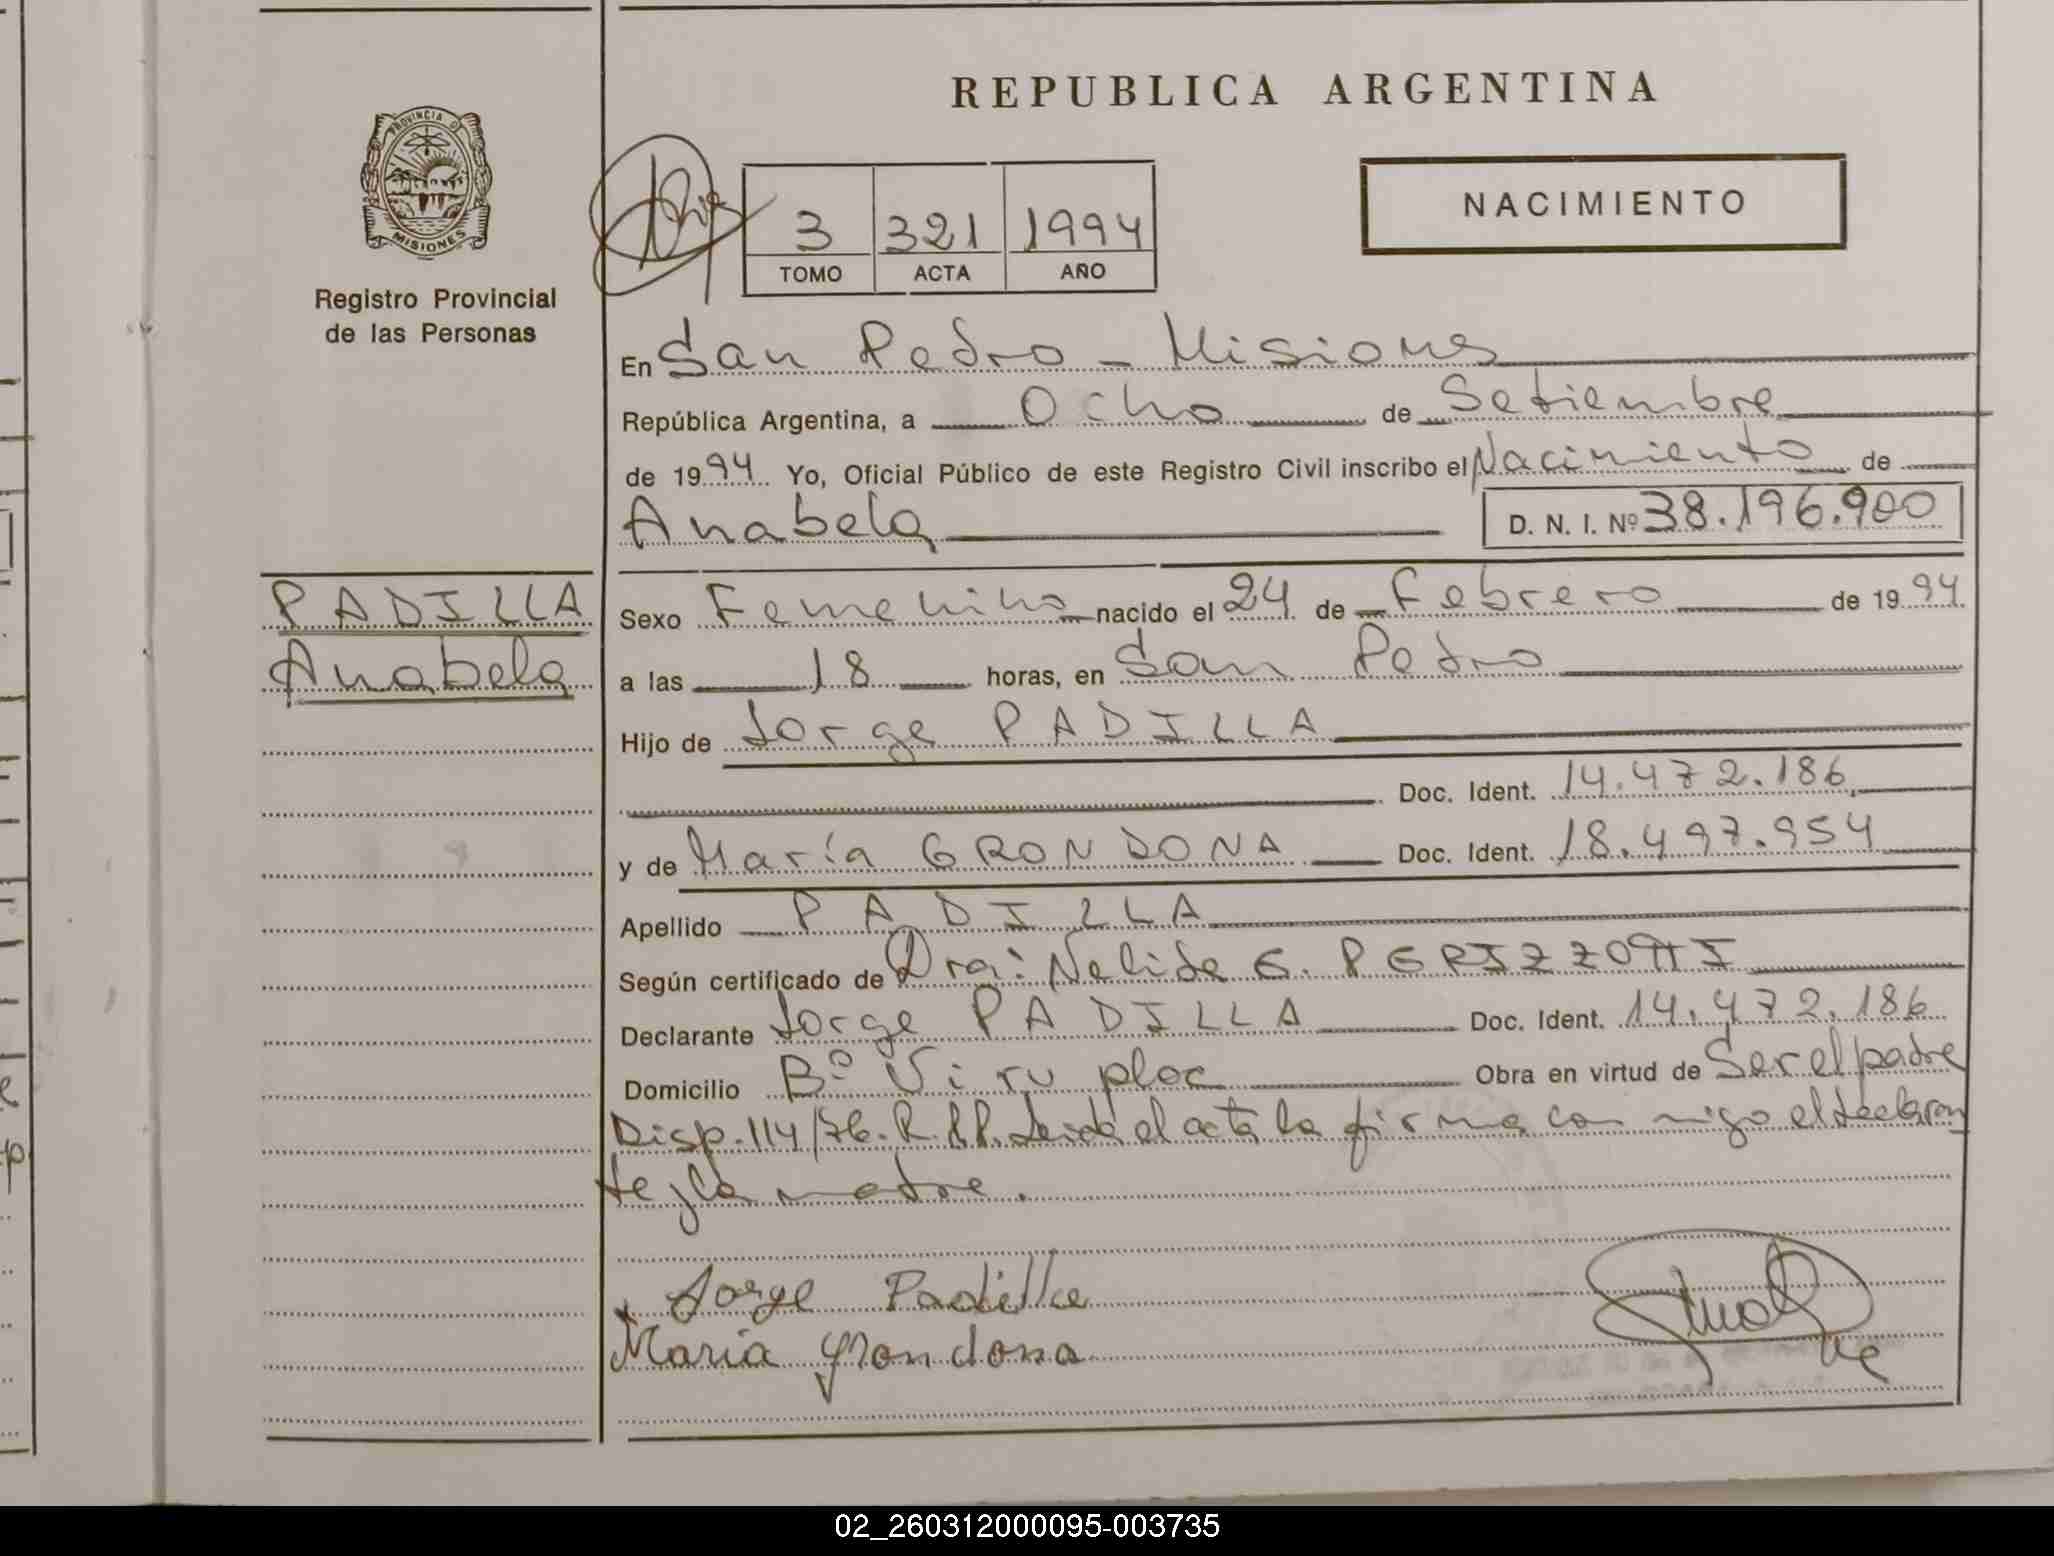 REPUBLICA ARGENTINA
PROVINCIA D
MISIONES
Registro Provincial
de las Personas
3 321 1994
TOMO ACTA AÑO
NACIMIENTO
En San Pedro - Misiones
República Argentina, a Ocho de Setiembre
de 1994 Yo, Oficial Público de este Registro Civil inscribo el Nacimiento de
Anabela D. N. I. Nº 38.196.900
PADILLA
Anabela
Sexo Femenino nacido el 24 de Febrero de 1994
a las 18 horas, en San Pedro
Hijo de Jorge PADILLA
Doc. Ident. 14.472.186
y de María GRONDONA Doc. Ident. 18.497.954
Apellido PADILLA
Según certificado de Dra: Nelida G. PERIZZOTTI
Declarante Jorge PADILLA Doc. Ident. 14.472.186
Domicilio Bº Viru ploc Obra en virtud de Ser el padre
Disp. 114/76. R.P.P. Leída el acta la firma con migo el declaran
te y la madre.
Jorge Padilla
María Grondona
02_260312000095-003735